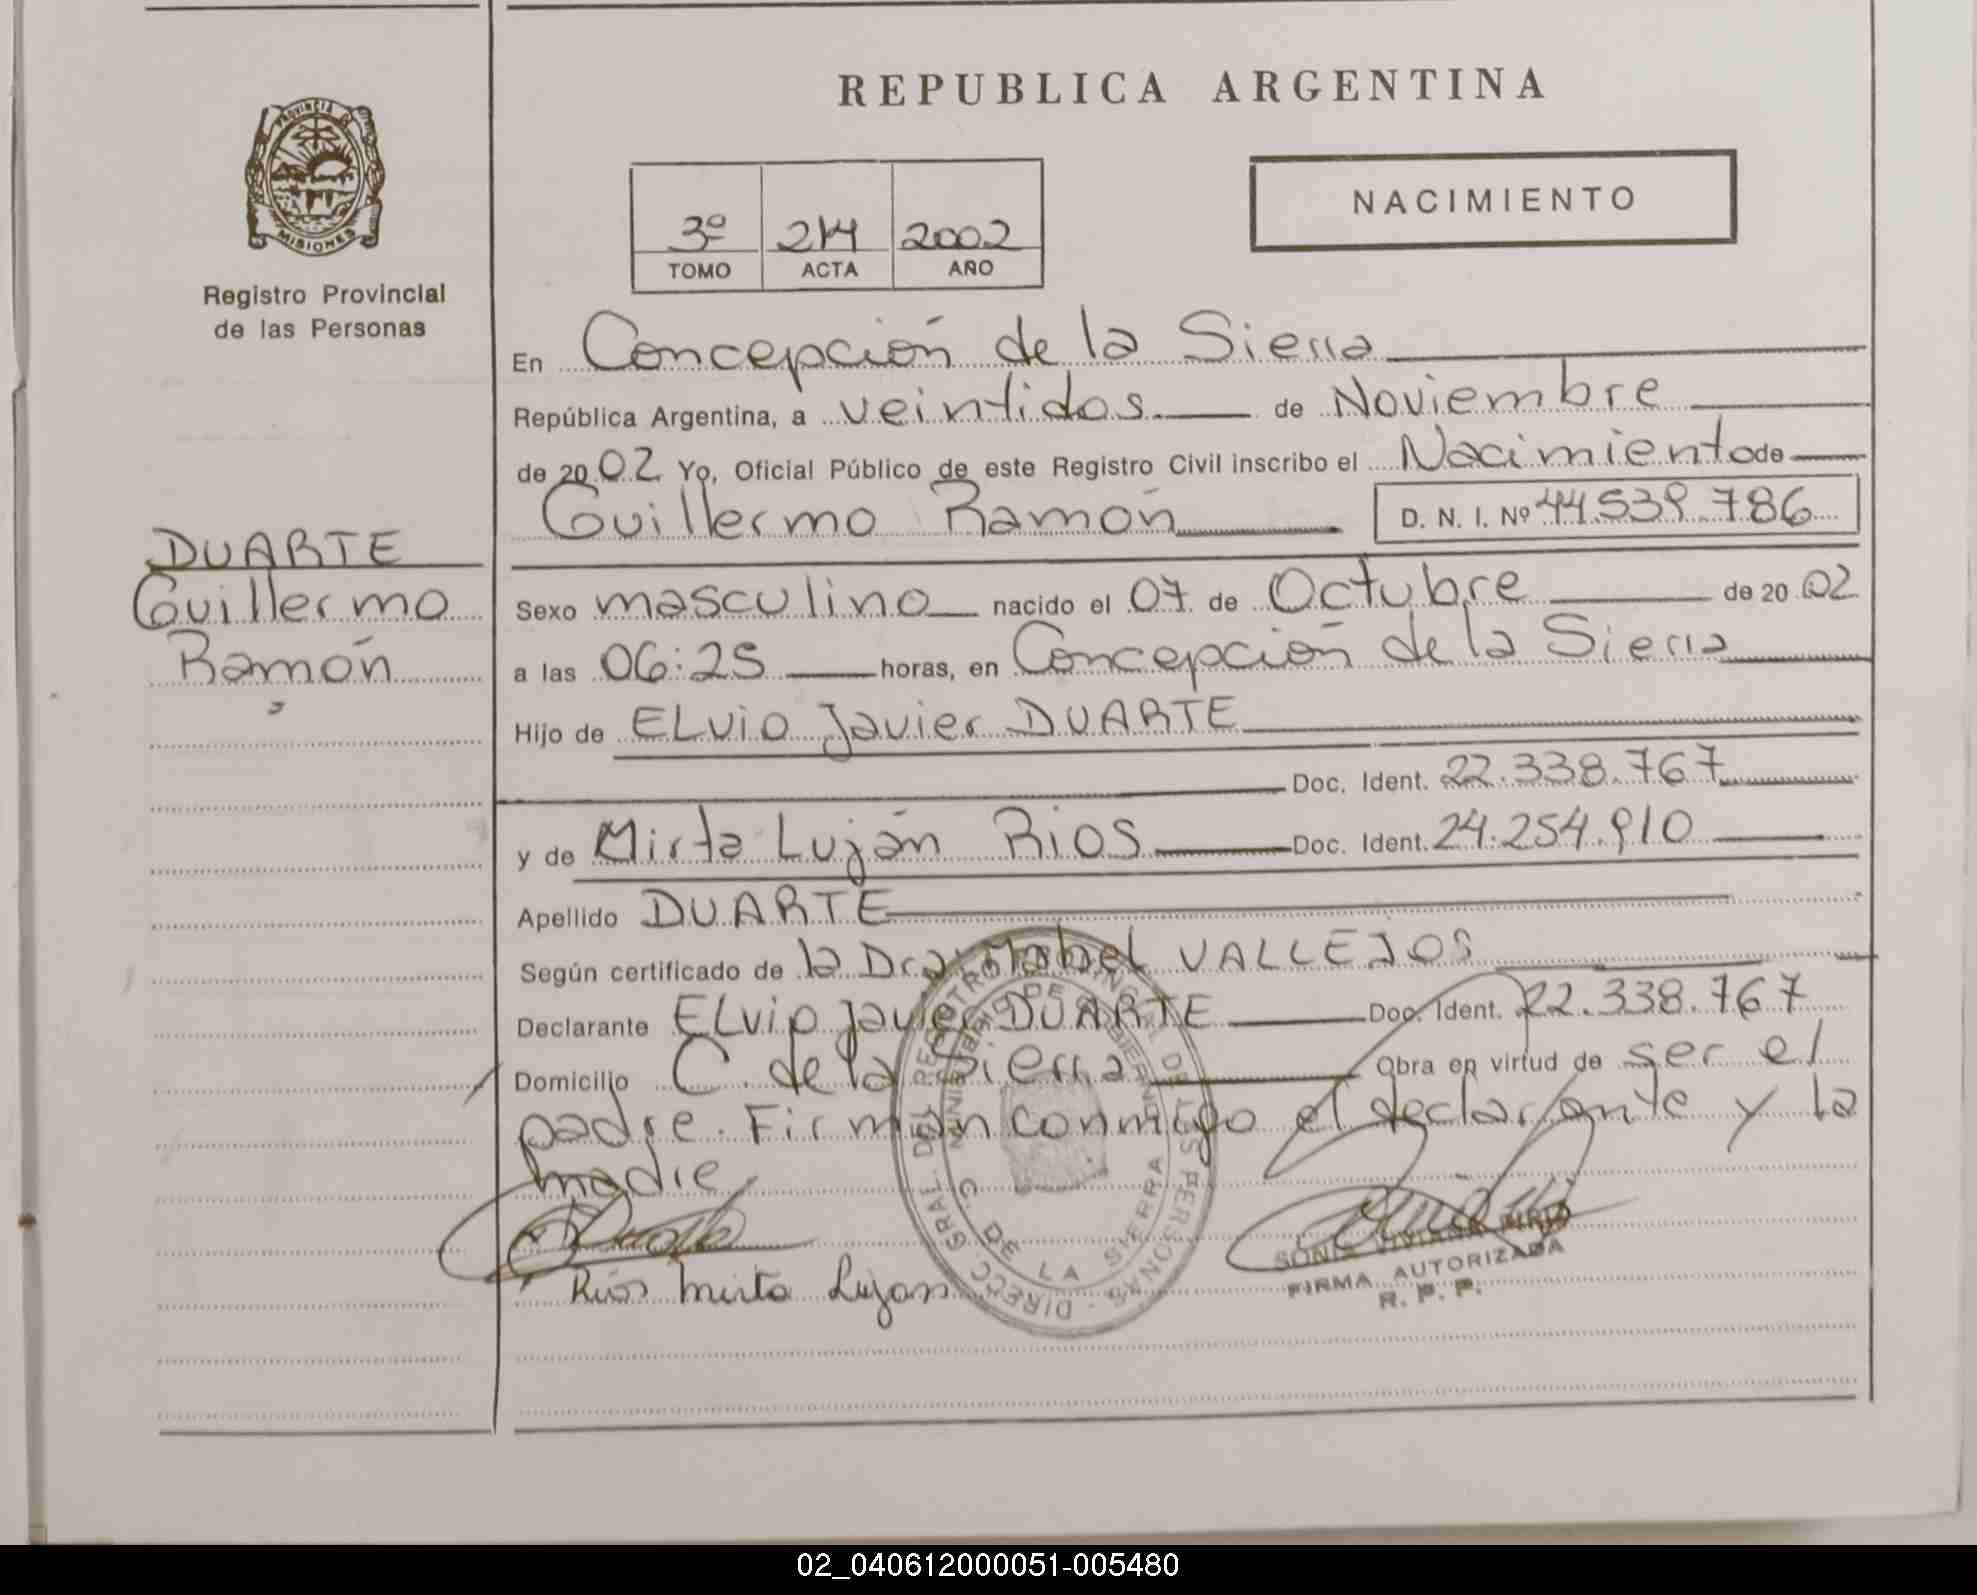 REPUBLICA ARGENTINA
PROVINCIA DE
MISIONES
Registro Provincial
de las Personas
NACIMIENTO
3º 214 2002
TOMO ACTA AÑO
En Concepción de la Sierra
República Argentina, a veintidos de Noviembre
de 2002 Yo, Oficial Público de este Registro Civil inscribo el Nacimiento de
Guillermo Ramón D. N. I. Nº 44.539.786
DUARTE
Guillermo
Ramón
Sexo masculino nacido el 07 de Octubre de 2002
a las 06:25 horas, en Concepción de la Sierra
Hijo de ELVIO Javier DUARTE
Doc. Ident. 22.338.767
y de Mirta Luján RIOS Doc. Ident. 24.254.910
Apellido DUARTE
Según certificado de la Dra. Mabel VALLEJOS
Declarante ELVIO Javier DUARTE Doc. Ident. 22.338.767
Domicilio C. de la Sierra Obra en virtud de ser el
padre. Firman conmigo el declarante y la
madre
Rios Mirta Lujan
DIRECC. GRAL. DEL REGISTRO PROVINCIAL DE LAS PERSONAS
MINISTERIO DE GOBIERNO
C. DE LA SIERRA
SONIA VIVIANA
FIRMA AUTORIZADA
R. P. P.
02_040612000051-005480